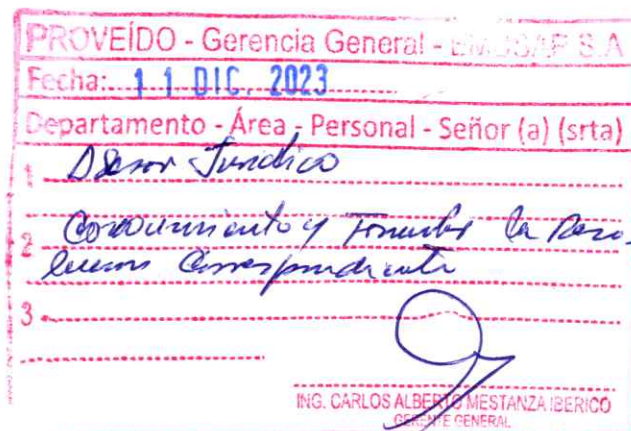 PROVEÍDO - Gerencia General - EMUSAP S.A
Fecha: 11 DIC. 2023
Departamento - Área - Personal - Señor (a) (srta)
1 Asesor Jurídico
2 Conocimiento y Formular la Reso-
lucion Correspondiente
3
ING. CARLOS ALBERTO MESTANZA IBERICO
GERENTE GENERAL